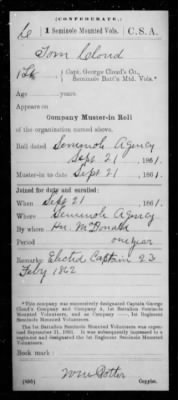 (CONFEDERATE.)
C | 1 Seminole Mounted Vols. | C.S.A.
Tom Cloud
1 Lt, Capt. George Cloud's Co., Seminole Batt'n Mtd. Vols.*
Age years.
Appears on
Company Muster-in Roll
of the organization named above.
Roll dated Seminole Agency
Sept 21, 1861.
Muster-in to date Sept 21, 1861.
Joined for duty and enrolled:
When Sept 21, 1861.
Where Seminole Agency
By whom McDonald
Period one year
Remarks: Elected Captain 23
Feby 1862
*This company was successively designated Captain George Cloud's Company and Company
1st Battalion Seminole Mounted Volunteers, and as Company
1st Regiment Seminole Mounted Volunteers.
The 1st Battalion Seminole Mounted Volunteers was organized September 21, 1861. It was subsequently increased to a regiment and designated the 1st Regiment Seminole Mounted Volunteers.
Book mark:
Copyist.